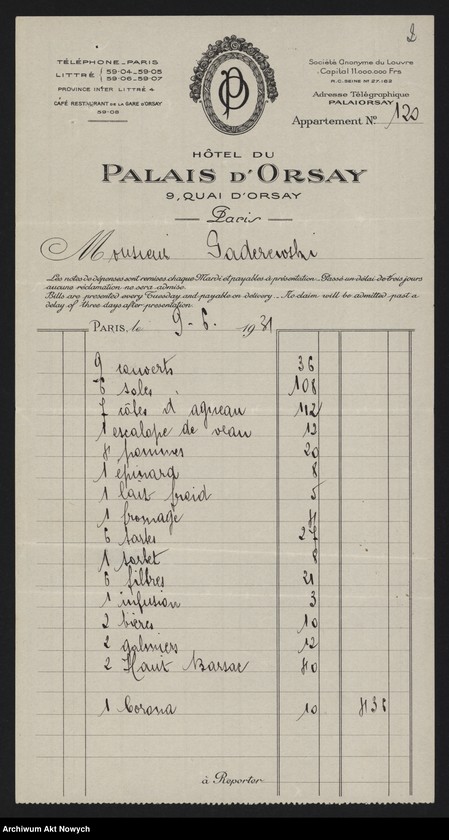 2
TÉLÉPHONE_PARIS
LITTRÉ 59-04_59-05
59-06_59-07
PROVINCE INTER LITTRÉ 4
CAFÉ RESTAURANT DE LA GARE D'ORSAY
59-08
PO
Société Anonyme du Louvre
Capital 11.000.000 Frs
R.C. SEINE Nº 27.182
Adresse Télégraphique
PALAIORSAY
Appartement Nº 120
HÔTEL DU
PALAIS D'ORSAY
9, QUAI D'ORSAY
Paris
Monsieur Paderewski
Les notes de dépenses sont remises chaque Mardi et payables à présentation_ Passé un délai de trois jours
aucune réclamation ne sera admise.
Bills are presented every Tuesday and payable on delivery_ No claim will be admitted past a
delay of three days after presentation
PARIS, le 9-6. 1931
9 couverts 36
6 soles 108
7 côtes d'agneau 112
1 escalope de veau 12
4 pommes 20
1 épinard 8
1 lait froid 5
1 fromage 4
6 tartes 27
1 sorbet 8
6 filtres 21
1 infusion 3
2 bières 10
2 galmiers 12
2 Haut Barsac 40
1 Corona 10 436
à Reporter
Archiwum Akt Nowych